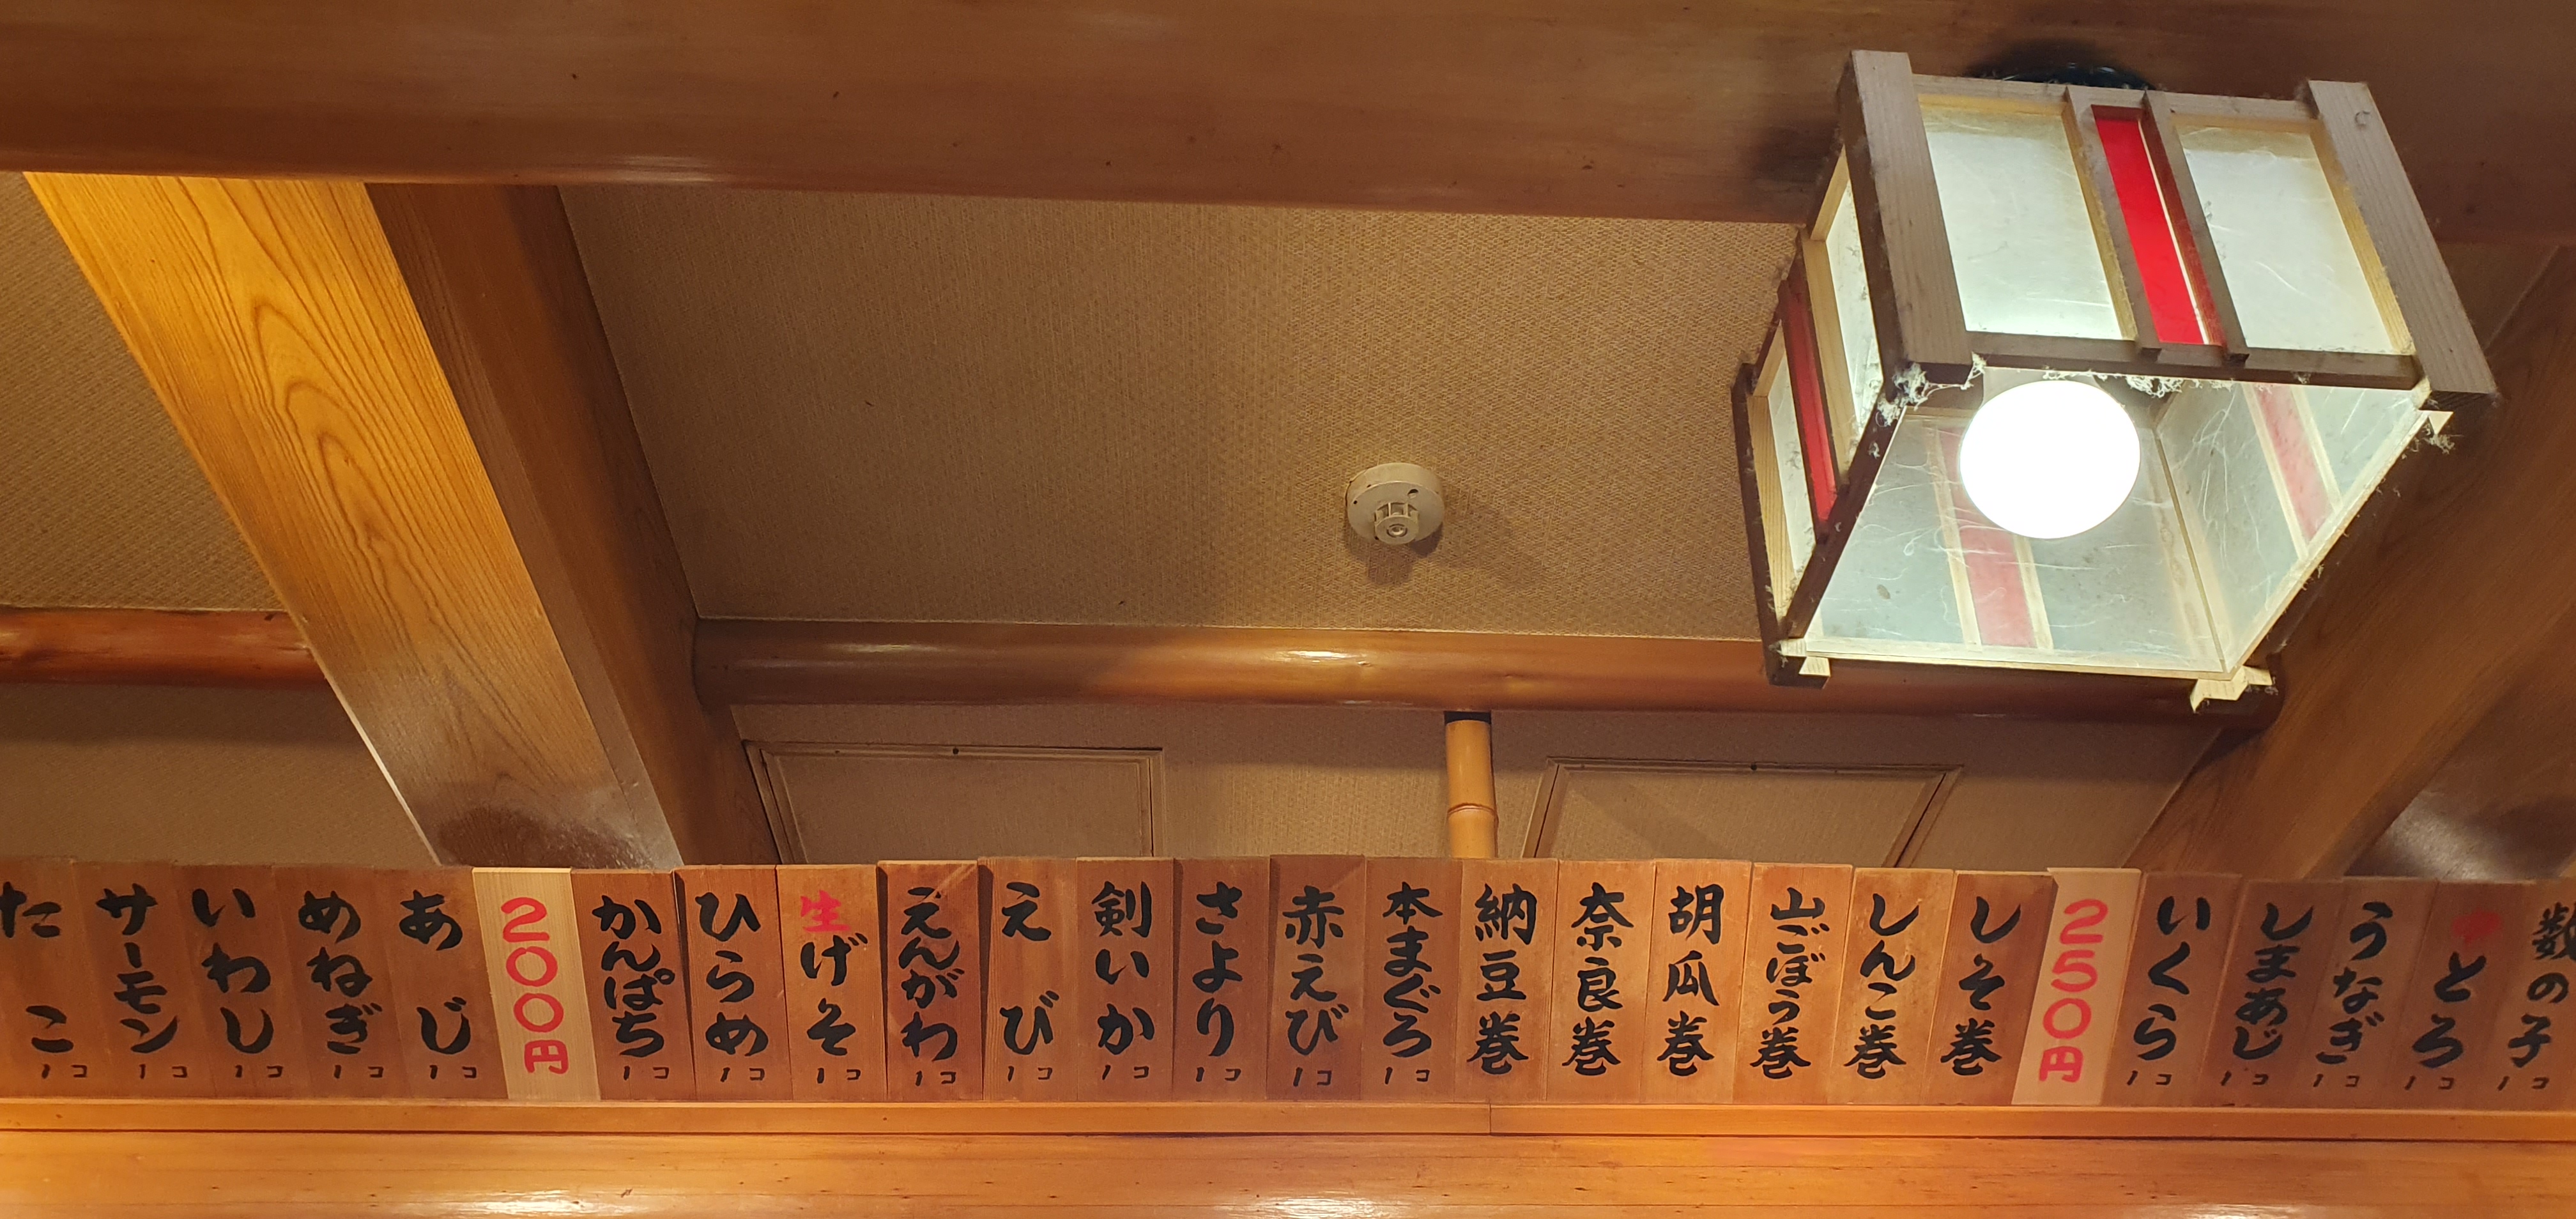 数の子1コ
とろ1コ
うなぎ1コ
しまあじ1コ
いくら1コ
250円
しそ巻
しんこ巻
山ごぼう巻
胡瓜巻
奈良巻
納豆巻
本まぐろ1コ
赤えび1コ
さより1コ
剣いか1コ
えび1コ
えんがわ1コ
生げそ1コ
ひらめ1コ
かんぱち1コ
200円
あじ1コ
めねぎ1コ
いわし1コ
サーモン1コ
たこ1コ